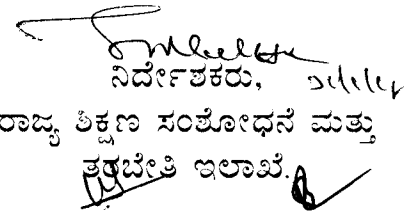 ನಿರ್ದೇಶಕರು,
ರಾಜ್ಯ ಶಿಕ್ಷಣ ಸಂಶೋಧನೆ ಮತ್ತು
ತರಬೇತಿ ಇಲಾಖೆ.